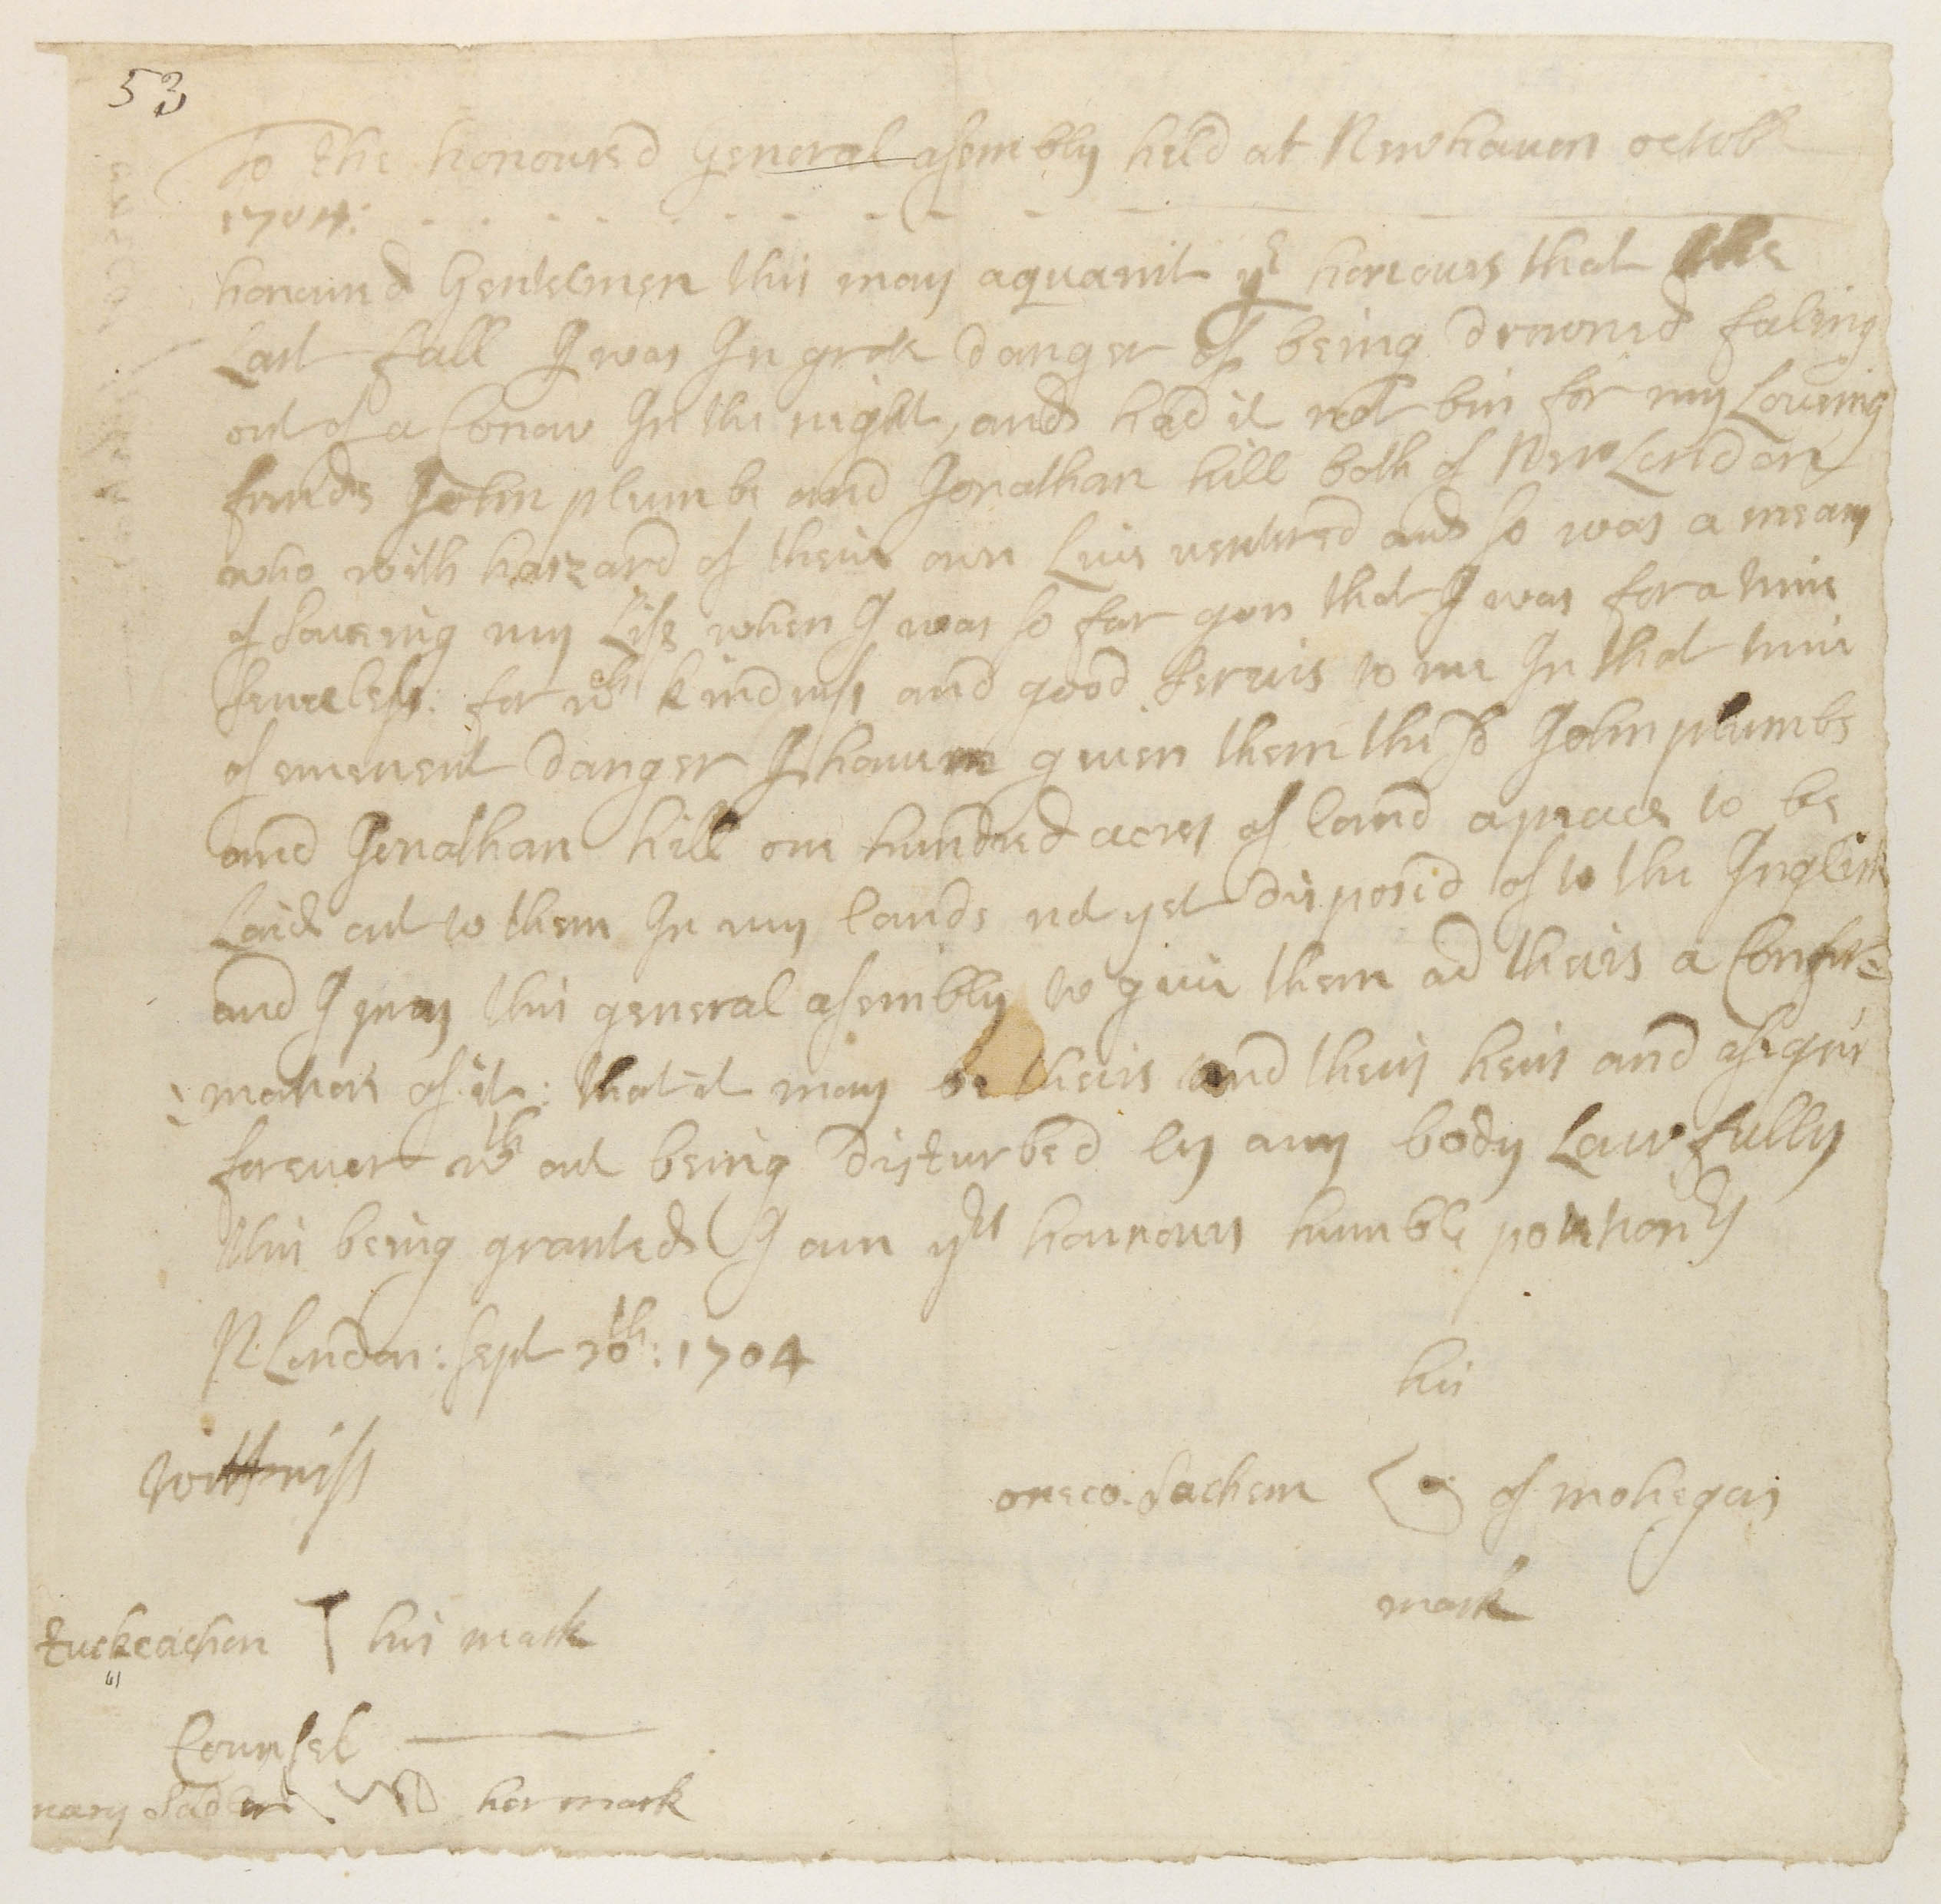 53
To the honoured General asembly held at Newhauen octobr
1704:
honourd Gentelmen this may aquaint yr honours that the
Last fall I was In grate danger of being drowned faling
out of a Conow In the night, and had it not bin for my Loueing
frinds John plumbe and Jonathan hill both of New London
who with hazzard of their own Liue ventured and so was a means
of Saueing my Life when I was so far gon that I was for a time
senceless: for wch kindness and good seruis to me In that time
of emenent danger I haue giuen them the sd John plumbe
and Jonathan hill one hundred acres of land apeace to be
Laid out to them In my lands not yet disposed of to the Inglish
and I pray this general asembly to giue them ad theirs a Confir=
=mation of it: that it may be theirs and theirs heirs and asigns
foreuer wth out being disturbed by any body Lawfully
this being granted I am yrs honours humble potitionr
N:London: sept 20th: 1704
his
Wittniss
oneco. Sachem of mohegan
mark
tuckeachon his mark
Counsel
mary Sadler her mark